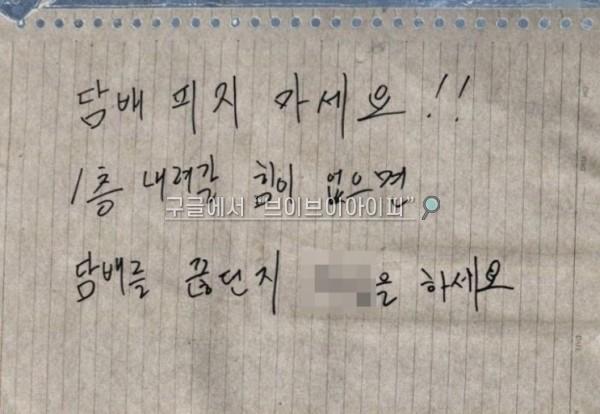 담배 피지 마세요!!
1층 내려갈 힘이 없으면
구글에서 "브이브이아이피"
담배를 끊던지 을 하세요